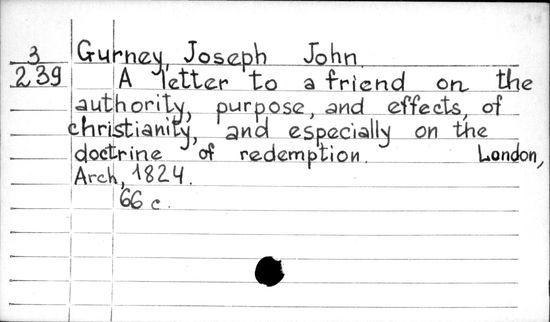 3 Gurney, Joseph John.
239 A letter to a friend on the
authority, purpose, and effects, of
christianity, and especially on the
doctrine of redemption. London,
Arch, 1824.
66 c.